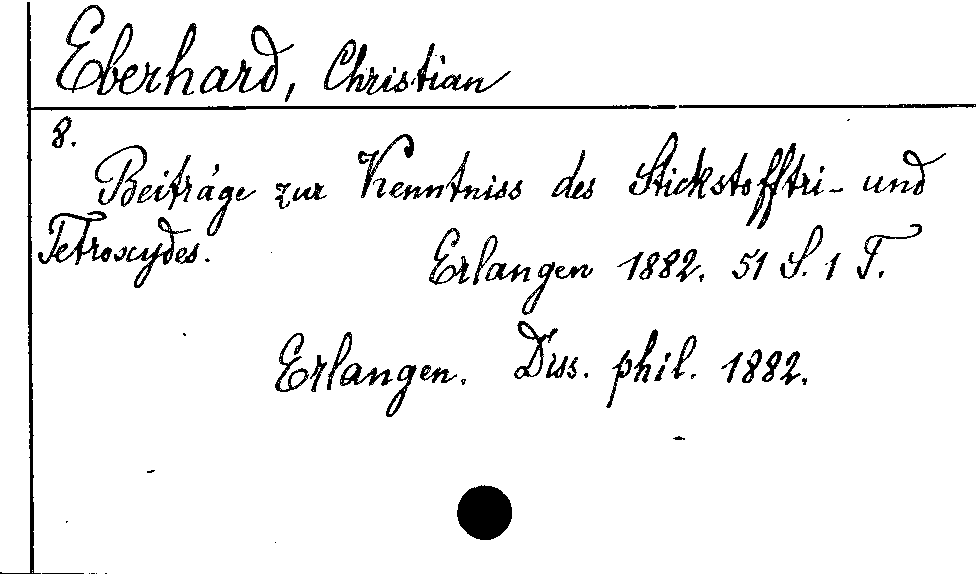 Eberhard, Christian
8.
Beiträge zur Kenntniss des Stickstofftri- und
Tetroxydes.
Erlangen 1882. 51 S. 1 T.
Erlangen. Diss. phil. 1882.